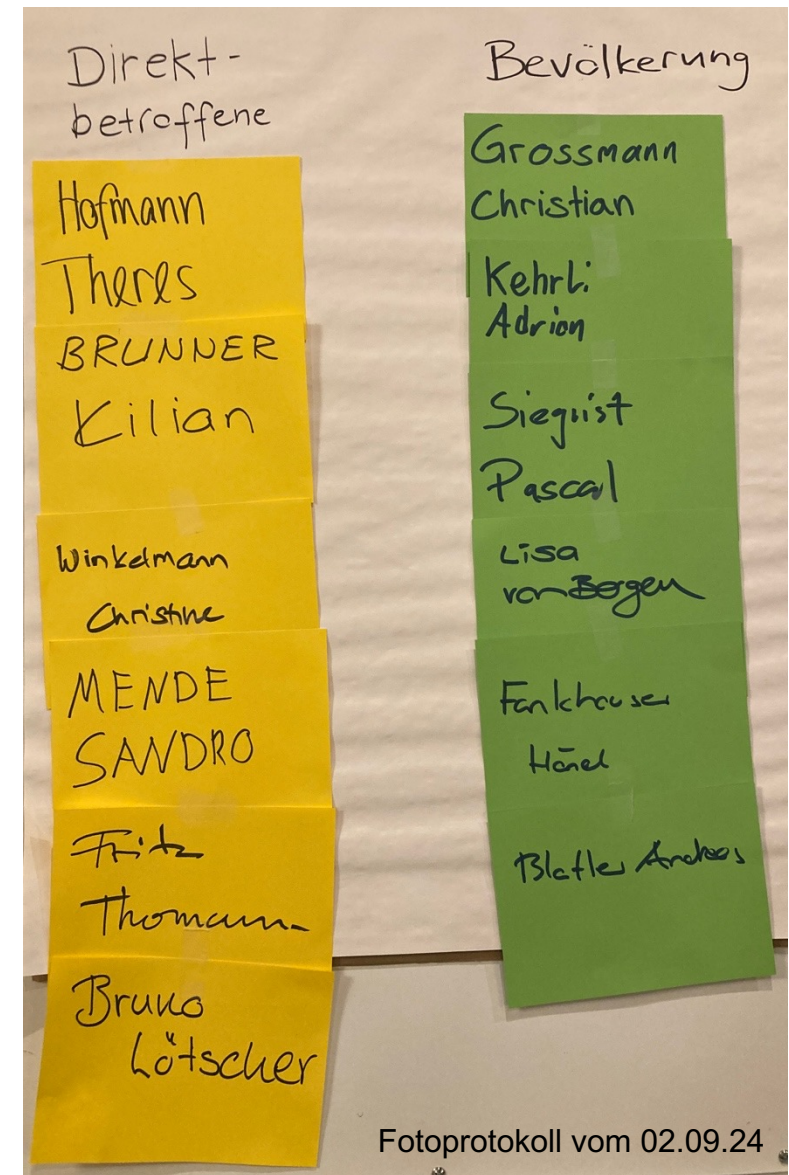 Direkt-
betroffene
Hofmann
Theres
BRUNNER
Kilian
Winkelmann
Christine
MENDE
SANDRO
Fritz
Thomann
Bruno
Lötscher
Bevölkerung
Grossmann
Christian
Kehrli
Adrian
Siegrist
Pascal
Lisa
von Bergen
Fankhauser
Andreas
Fotoprotokoll vom 02.09.24